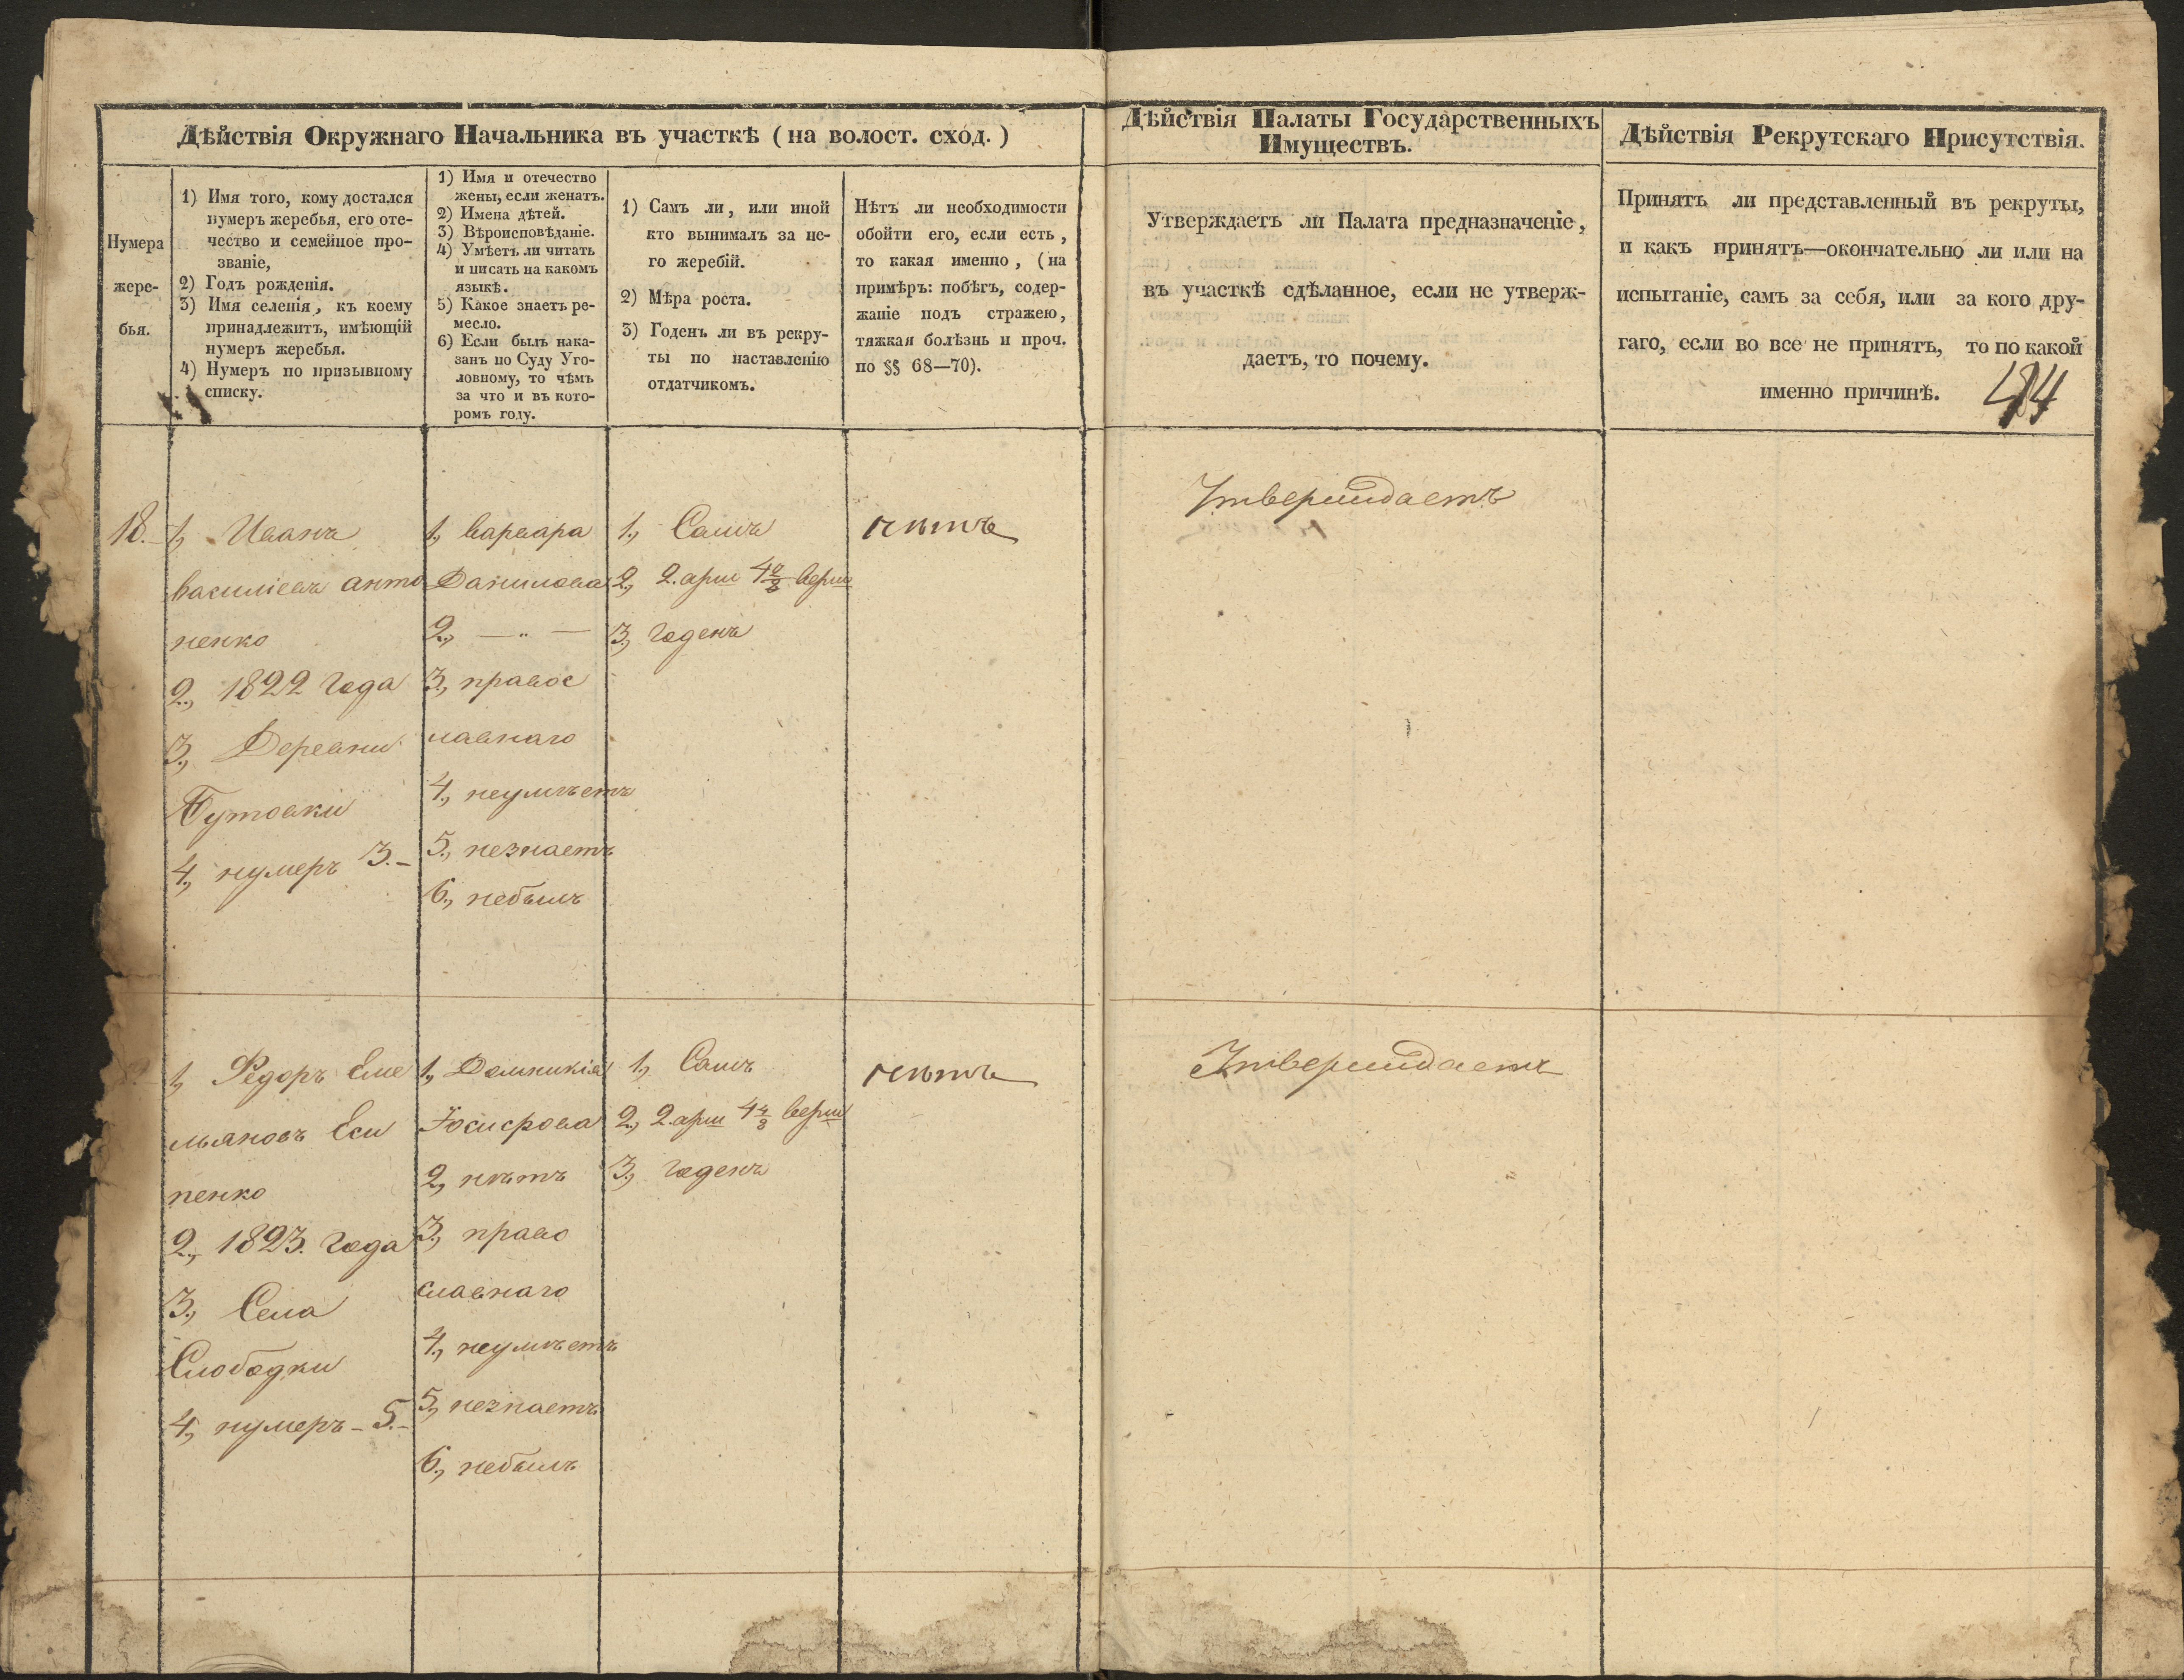 Дѣйствія Окружнаго Начальника въ участкѣ (на волост. сход.)
Нумера
жере-
бья.
1) Имя того, кому достался
нумеръ жеребья, его оте-
чество и семейное про-
званіе,
2) Годъ рожденія.
3) Имя селенія, къ коему
принадлежитъ, имѣющій
нумеръ жеребья.
4) Нумеръ по призывному
списку.
1) Имя и отечество
жены, если женатъ.
2) Имена дѣтей.
3) Вѣроисповѣданіе.
4) Умѣетъ ли читать
и писать на какомъ
языкѣ.
5) Какое знаетъ ре-
месло.
6) Если былъ нака-
занъ по Суду Уго-
ловному, то чѣмъ
за что и въ кото-
ромъ году.
1) Самъ ли, или иной
кто вынималъ за не-
го жеребій.
2) Мѣра роста.
3) Годенъ ли въ рекру-
ты по наставленію
отдатчикомъ.
Нѣтъ ли необходимости
обойти его, если есть,
то какая именно, (на
примѣръ: побѣгъ, содер-
жаніе подъ стражею,
тяжкая болѣзнь и проч.
по §§ 68—70).
Дѣйствія Палаты Государственныхъ
Имуществъ.
Утверждаетъ ли Палата предназначеніе,
въ участкѣ сдѣланное, если не утверж-
даетъ, то почему.
Дѣйствія Рекрутскаго Присутствія.
Принятъ ли представленный въ рекруты,
и какъ принятъ—окончательно ли или на
испытаніе, самъ за себя, или за кого дру-
гаго, если во все не принятъ, то по какой
именно причинѣ.
18.
1, Иванъ
василіевъ анто
ненко
2, 1822 года
3, Деревни
Бутовки
4, нумеръ 3.
1, варвара
Данилова
2, — „ —
3, правос
лавнаго
4, неумѣетъ
5, незнаетъ
6, небылъ
1, Самъ
2, 2. арш 4 2/8 верш
3, годенъ
нѣтъ
Утверждаетъ
1, Федоръ Еме
льяновъ Еси
пенко
2, 1823. года
3, Села
Слободки
4, нумеръ - 5.
1, Домникія
2, нѣтъ
3, право
славнаго
4, неумѣетъ
5, незнаетъ
6, небылъ
1, Самъ
2, 2 арш 4 4/8 верш
3, годенъ
нѣтъ
Утверждаетъ